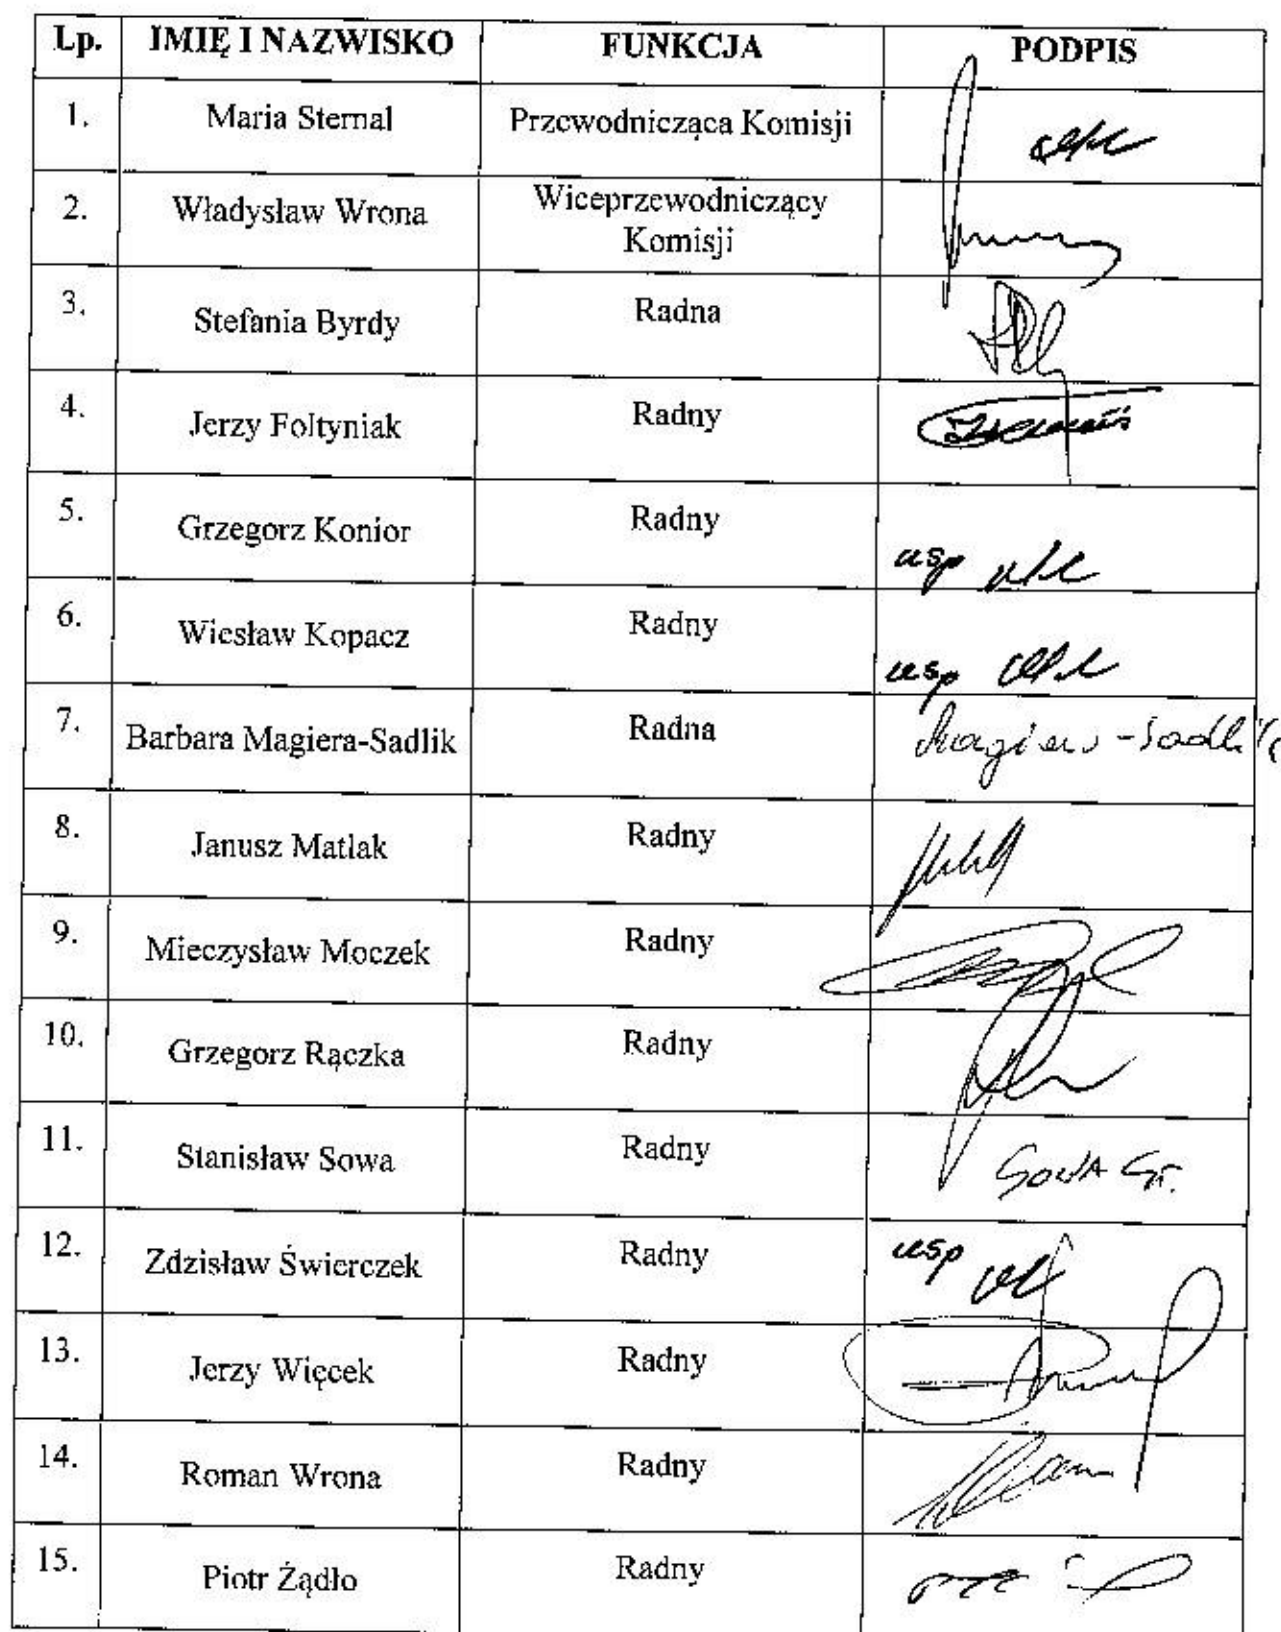 Lp. IMIĘ I NAZWISKO FUNKCJA PODPIS
1. Maria Sternal Przewodnicząca Komisji
2. Władysław Wrona Wiceprzewodniczący
Komisji
3. Stefania Byrdy Radna
4. Jerzy Foltyniak Radny
5. Grzegorz Konior Radny usp
6. Wiesław Kopacz Radny usp
7. Barbara Magiera-Sadlik Radna Magiera-Sadlik
8. Janusz Matlak Radny
9. Mieczysław Moczek Radny
10. Grzegorz Rączka Radny
11. Stanisław Sowa Radny Sowa St.
12. Zdzisław Świerczek Radny usp
13. Jerzy Więcek Radny
14. Roman Wrona Radny
15. Piotr Żądło Radny